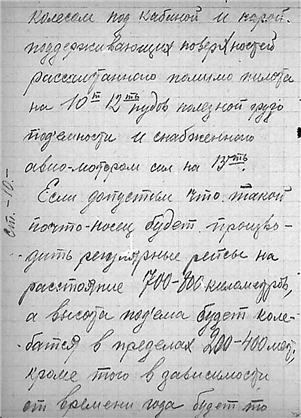 колесом под кабиной и парой
поддерживающих поверхностей
рассчитанного помимо пилота
на 10ть 12ть пудов полезной грузо
подъемности и снабженного
авио-мотором сил на 13ть.
Если допустим что такой
почто-носец будет произво-
дить регулярные рейсы на
расстояние 700-800 километров,
а высота подема будет коле-
батся в пределах 200-400 мет,
кроме того в зависимости
от времени года будет то
Ст. -10.-